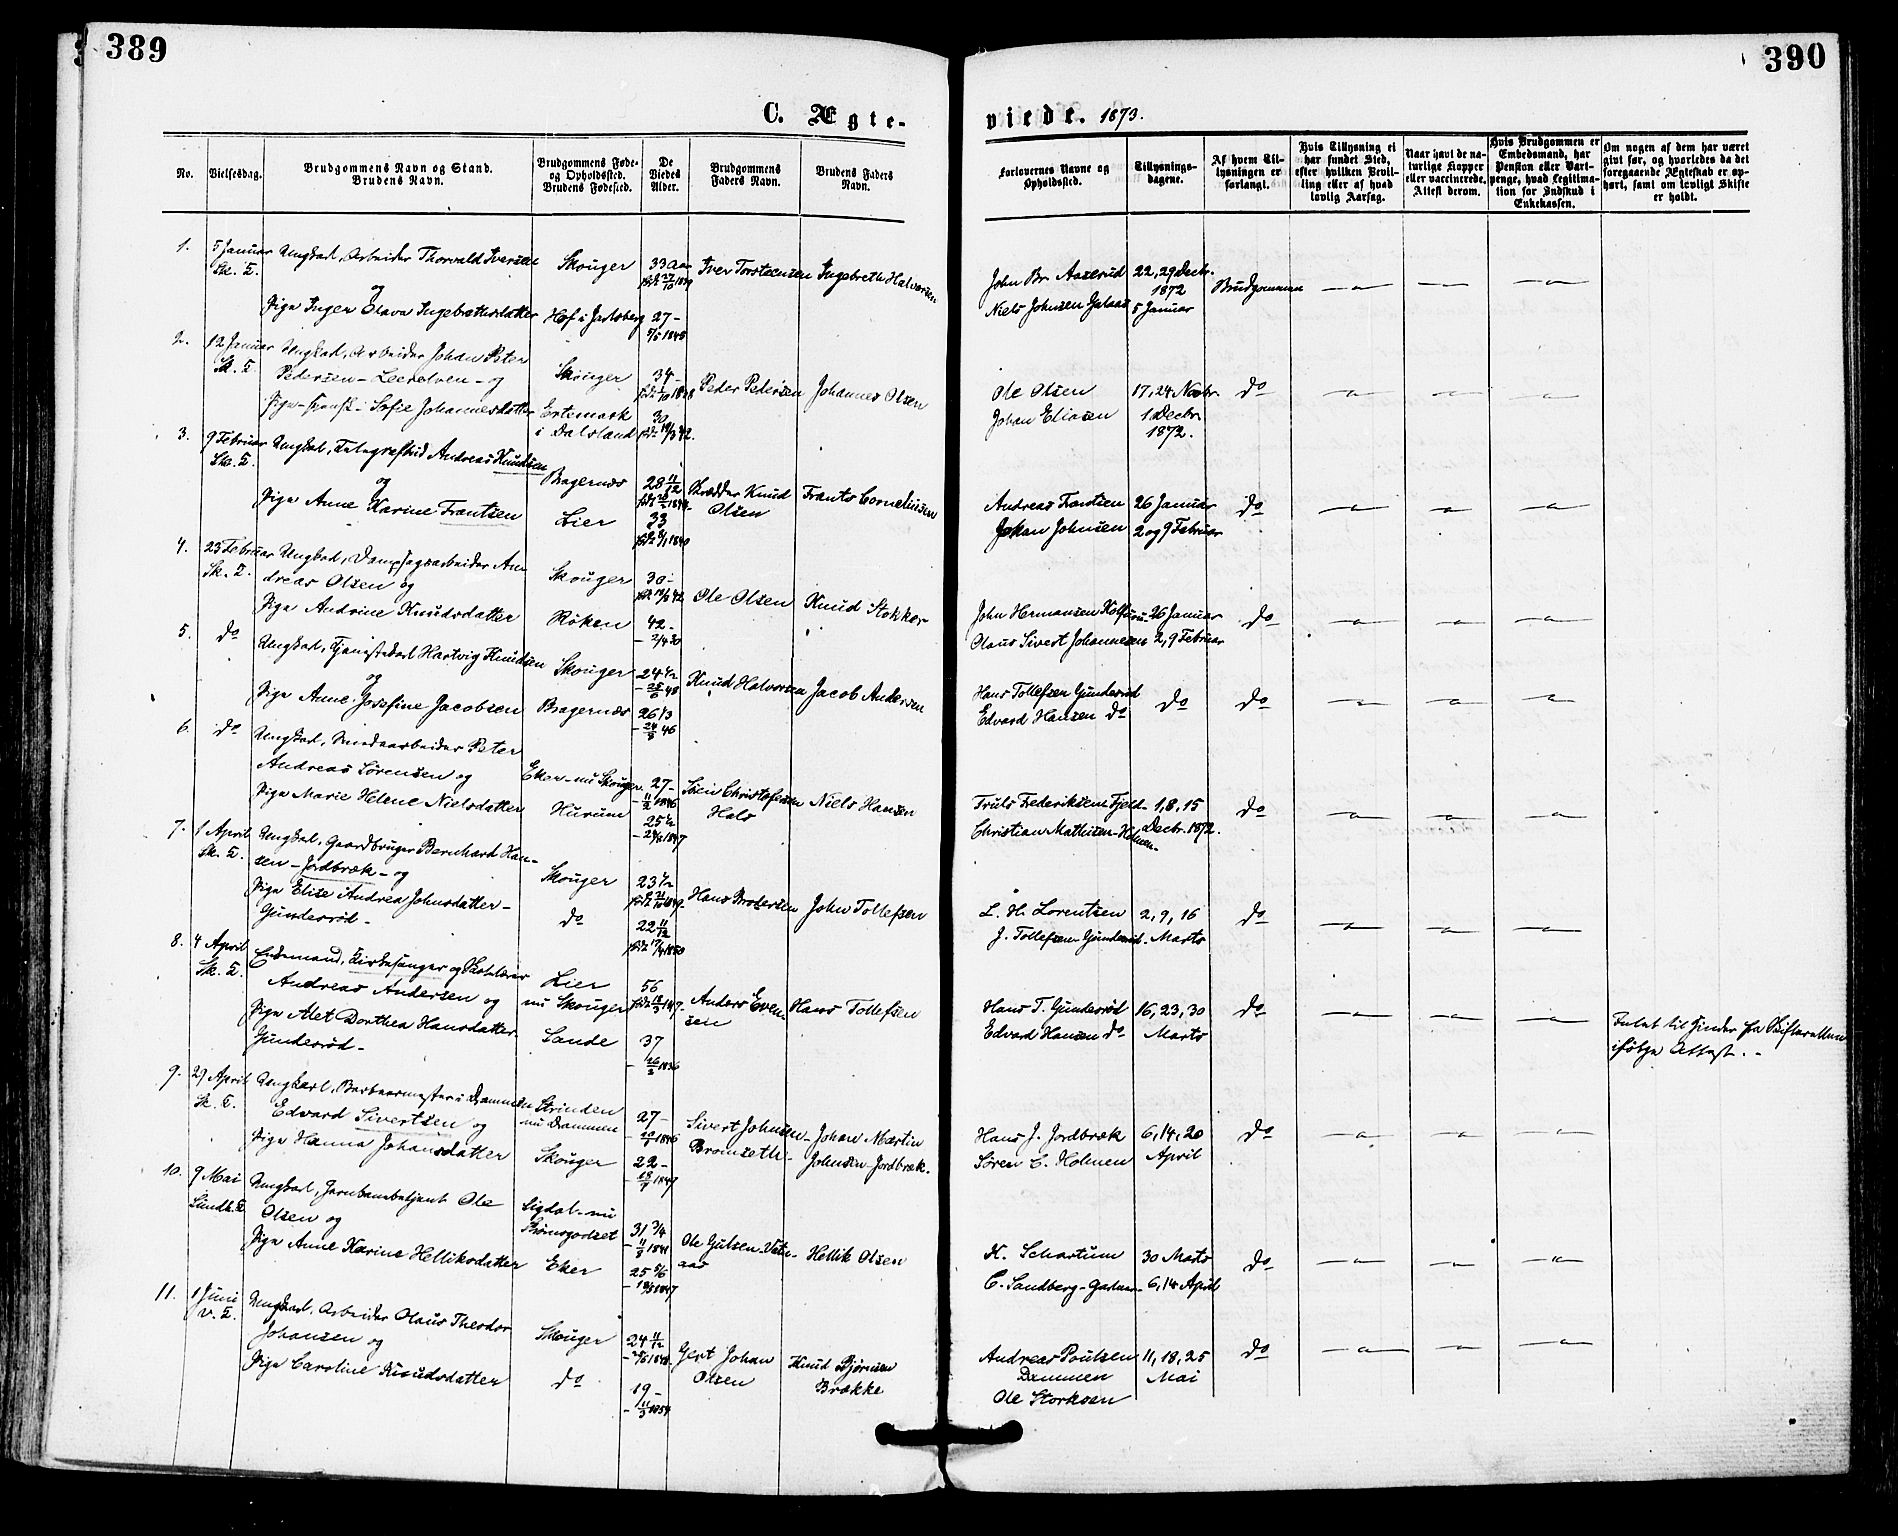 389
390
C. Ægte-
viede. 1873.
No.
Vielsesdag.
Brudgommens Navn og Stand.
Brudens Navn.
Brudgommens Føde-
og Opholdssted.
Brudens Fødested.
De
Viedes
Alder.
Brudgommens
Faders Navn.
Brudens Faders
Navn.
Forlovernes Navne og
Opholdssted.
Tillysnings-
dagene.
Af hvem Til-
lysningen er
forlangt.
Hvis Tillysning ei
har fundet Sted,
efter hvilken Bevil-
ling eller af hvad
lovlig Aarsag.
Naar havt de na-
turlige Kopper
eller vaccinerede.
Attest derom.
Hvis Brudgommen er
Embedsmand, har
Pension eller Vart-
penge, hvad Legitima-
tion for Indskud i
Enkekassen.
Om nogen af dem har været
givt før, og hvorledes da det
foregaaende Ægteskab er op-
hørt, samt om lovligt Skifte
er holdt.
1.
5 Januar
Sk. K.
Ungkarl, Arbeider Thorvald Iversen
og
Pige Inger Olava Ingebrethsdatter
Skouger
Hof i Jarlsberg
33 Aar
27 -
5/5 1845
Iver Torstensen
Ingebreth Halvorsen
John Br. Aaserud
Niels Johnsen
22, 29 Decbr.
1872
5 Januar
Brudgommen
2.
12 Januar
Sk. K.
Ungkarl, Arbeider Johan Peter
Pedersen - Leerelven - og
Pige Sofie Johannesdatter
Skouger
Ertemark
i Dalsland
34 -
30
Peder Pedersen
Johannes Olsen
Ole Olsen
Johan Eliasen
17, 24 Novbr.
1 Decbr.
1872.
do
3.
9 Februar
Sk. K.
Ungkarl, Telegrafbud Andreas Knudsen
og
Pige Anne Karine Frantsen
Bragernæs
Lier
28 11/12
33
Skrædder Knud
Olsen
Frants Corneliusen
Andreas Frantsen
Johan Johnsen
26 Januar
2 og 9 Februar
do
4.
23 Februar
Sk. K.
Ungkarl, Dampsagarbeider An-
dreas Olsen og
Pige Andrine Knudsdatter
Skouger
Røken
30 -
42 -
- 2/4 30
Ole Olsen
Knud Stokker
John Hermansen
Olaus Sivert Johannesen
26 Januar
2, 9 Februar
do
5.
do
Ungkarl, Tjenestekarl Hartvig Knudsen
og
Pige Anne Josefine Jacobsen
Skouger
Bragernæs
24 1/2
26 1/3
Knud Halvorsen
Jacob Andersen
Hans Tollefsen Gunderød
Edvard Hansen do
do
do
6.
do
Ungkarl, Peter
Andreas Sørensen og
Pige Marie Helene Nielsdatter
Eker - nu Skouger
Hurum
27 -
- 11/2 1846
25 1/2
Sören Christofersen
Hals
Niels Hansen
Truls Frederiksen Fjeld
Christian Mathisen - Holmen -
1, 8, 15
Decbr. 1872.
do
7.
1 April
Sk. K.
Ungkarl, Gaardbruger Bernhard Han-
sen - Jordbræk - og
Pige Elise Andrea Johnsdatter -
Gunderød -
Skouger
do
23 1/2
22 11/12
Hans Brodersen
John Tollefsen
L. H. Lorentsen
J. Tollefsen Gunderød -
2, 9, 16
Marts
do
8.
4 April
Sk. K.
Enkemand, Kirkesanger og Skolelærer
Andreas Andersen og
Pige Alet Dorthea Hansdatter
Gunderød -
Lier
nu Skouger
Sande
56
37
Anders Even-
sen
Hans Tollefsen
Hans T. Gunderød
Edvard Hansen do
16, 23, 30
Marts
do
Intet til Hinder fra Skifteretten
ifølge Attest. -
9.
29 April
Sk. K.
Ungkarl, Barbeermester i Drammen
Edvard Sivertsen og
Pige Hanna Johansdatter
Strinden
nu Drammen
Skouger
27 -
22 -
Sivert Johnsen
Bromseth -
Johan Martin
Johnsen - Jordbræk.
Hans J. Jordbræk
Søren C. Holmen
6, 14, 20
April
do
10.
9 Mai
Ungkarl, Jernbanebetjent Ole
Olsen og
Pige Anne Karine Helliksdatter
Sigdal - nu
Strømsgodset
Eker
31 3/4
25 5/6
Ole Gulsen
Hellik Olsen
K. Schartum
C. Sandberg
30 Marts
6, 14 April
do
11.
1 Juni
V. K.
Ungkarl, Arbeider Olaus Theodor
Johansen og
Pige Caroline Knudsdatter
Skouger
do
24 11/12
19 -
Gert Johan
Olsen
Knud Bjørnsen
Brække
Andreas Poulsen
Dammen
Ole Storkaasen
11, 18, 25
Mai
do